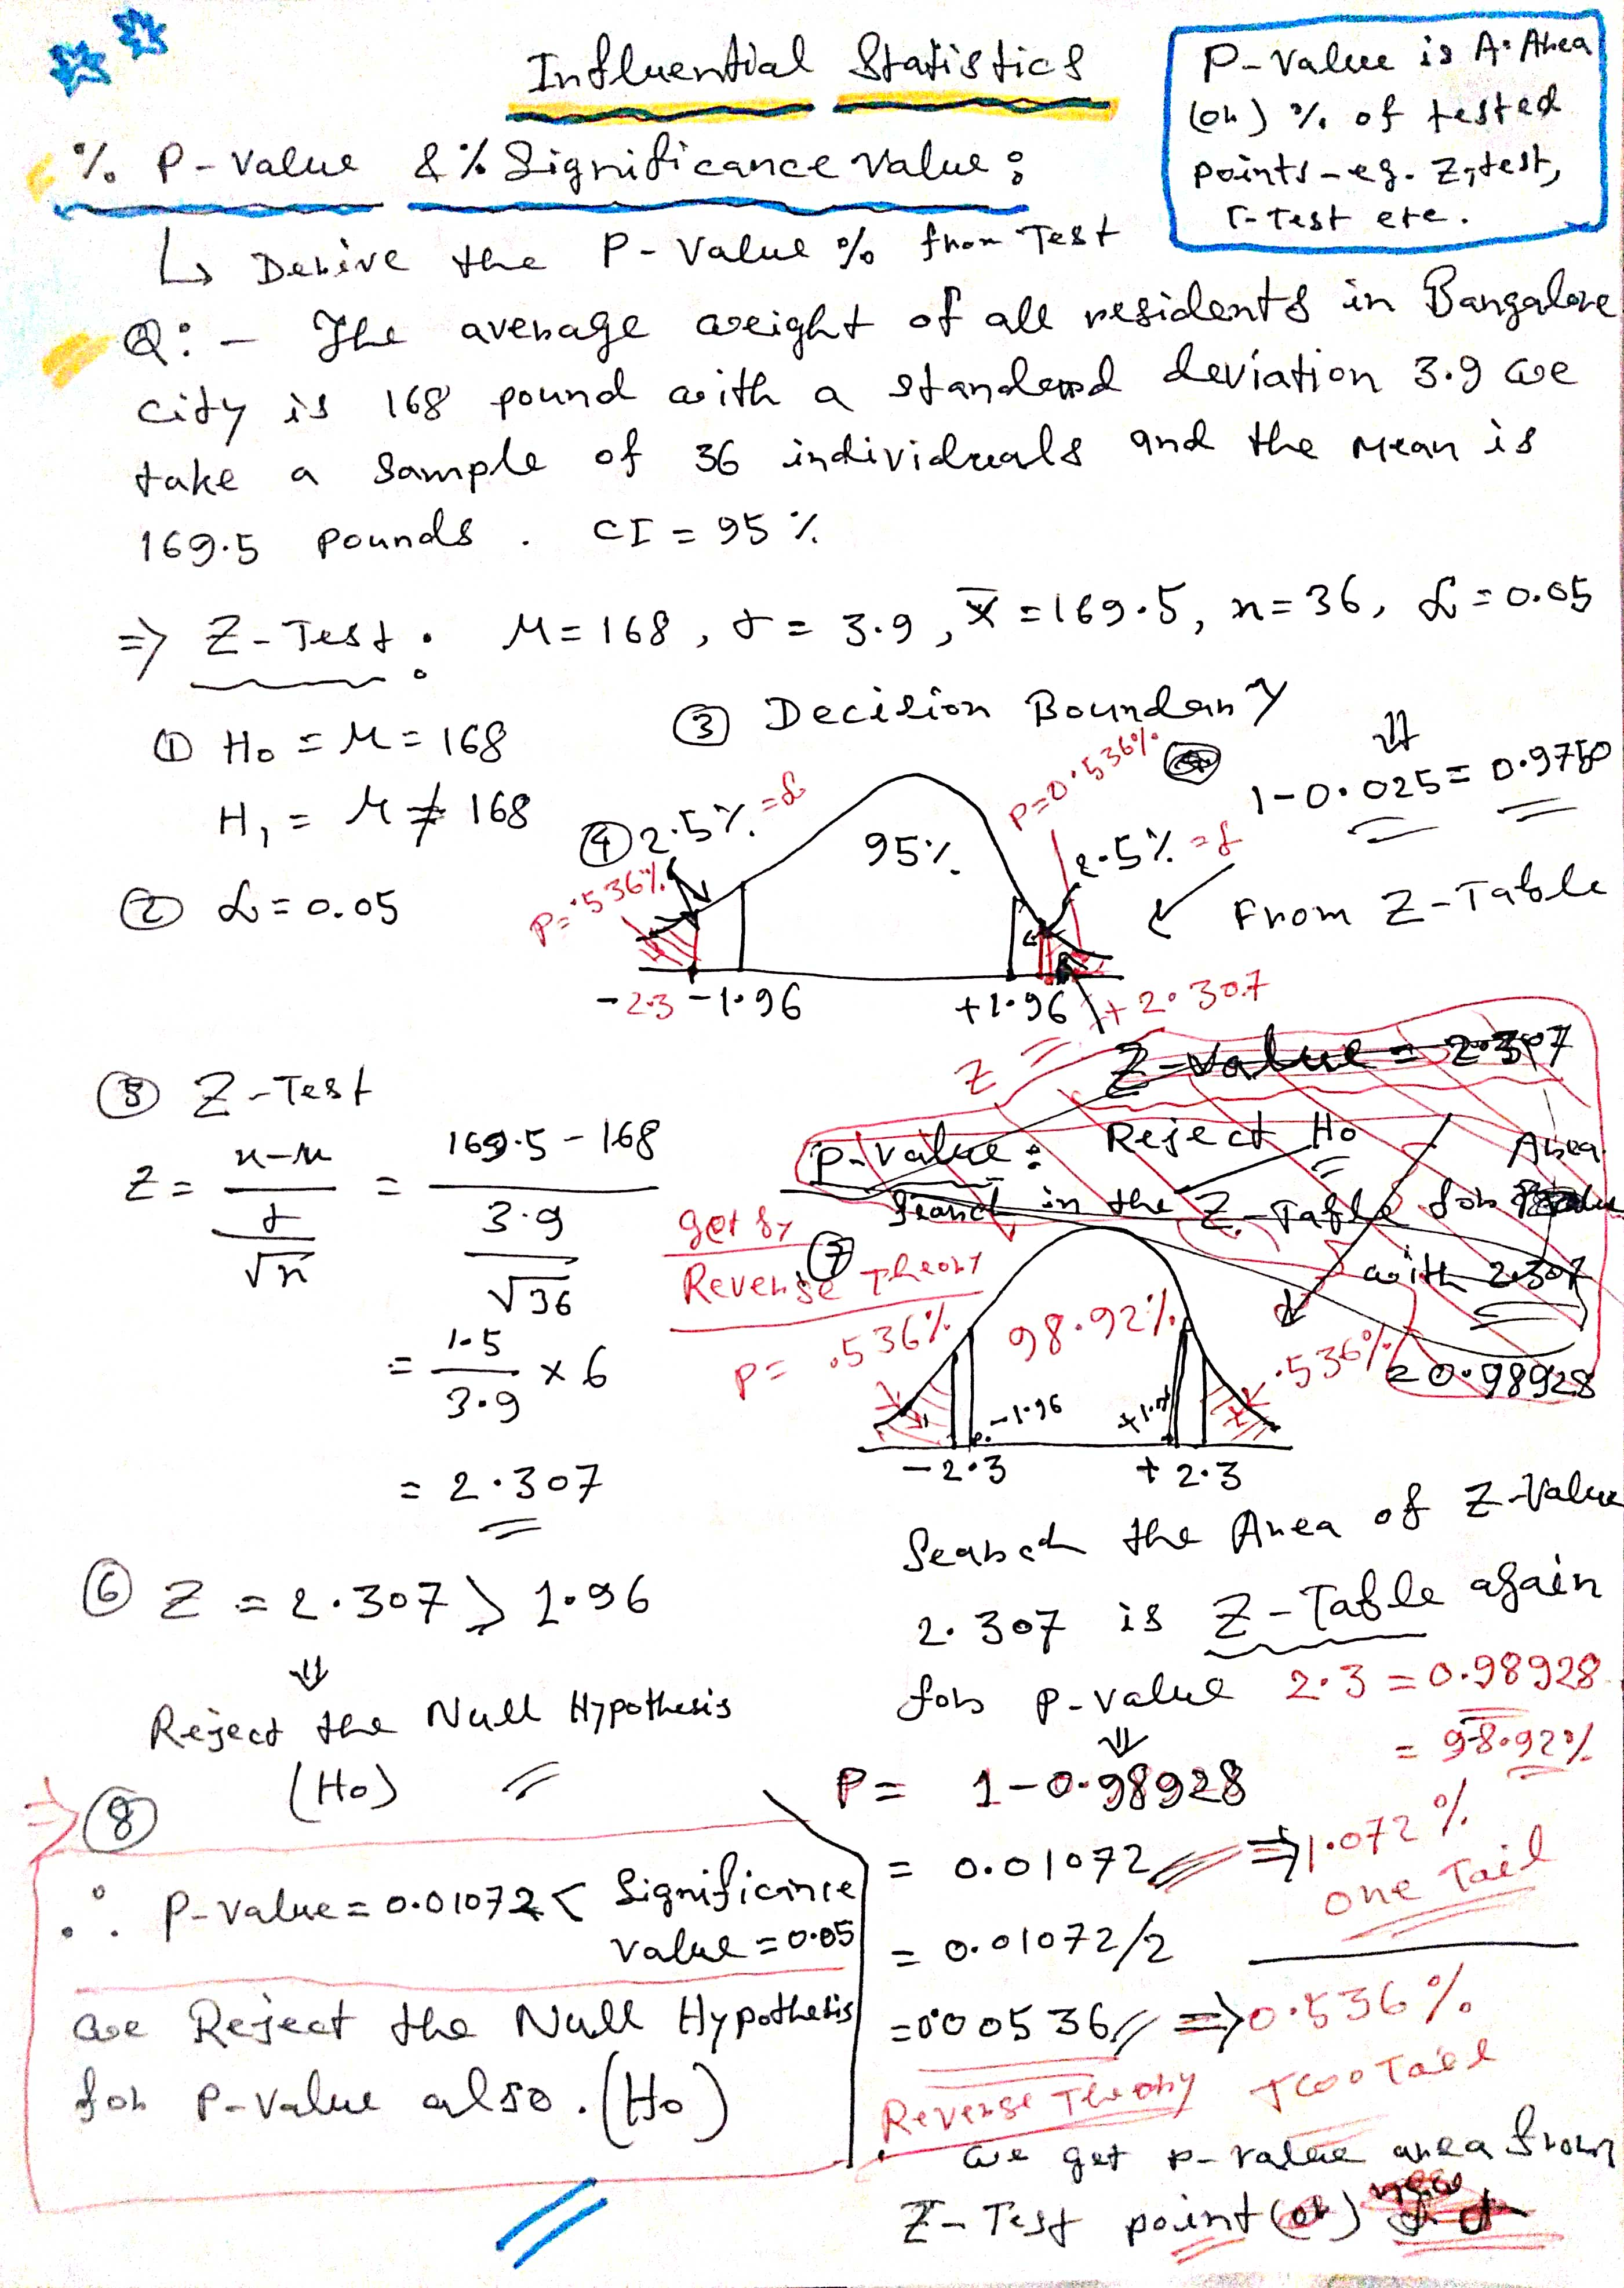 Influential Statistics
P-value is A Area
(or) % of tested
points - eg. Z-test,
T-Test etc.
% P-value & % Significance value:
↳ Derive the P-Value % from Test
Q:- The average weight of all residents in Bangalore
city is 168 pound with a standard deviation 3.9 we
take a sample of 36 individuals and the mean is
169.5 pounds. CI = 95 %
⇒ Z-Test: M = 168, σ = 3.9, x̄ = 169.5, n = 36, α = 0.05
① Ho = M = 168
H₁ = M ≠ 168
② α = 0.05
③ Decision Boundary
④ 2.5% = α
95%
P=0.536%
2.5% = α
P=.536%
⇓
1-0.025 = 0.9750
From Z-Table
-2.3 -1.96
+1.96 +2.307
Z
Z-value = 2.307
P-value: Reject Ho
Search in the Z-Table for
Area
with 2.307
= 0.98928
⑤ Z-Test
Z = x-M / σ/√n = 169.5-168 / 3.9/√36
= 1.5/3.9 x 6
= 2.307
get by
Reverse Theory
⑦
P= .536%
98.92%
.536%
-1.96
-2.3 +2.3
⑥ Z = 2.307 > 1.96
⇓
Reject the Null Hypothesis
(Ho)
Search the Area of Z-Value
2.307 is Z-Table again
for p-value 2.3 = 0.98928
= 98.92%
⇓
P = 1-0.98928
= 0.01072 ⇒ 1.072 %
one Tail
= 0.01072/2
= 0.00536 ⇒ 0.536 %
Reverse Theory Two Tail
we get p-value area from
Z-Test point (or)
⇒ ⑧
∴ P-value = 0.01072 < Significance
value = 0.05
we Reject the Null Hypothesis
for P-value also. (Ho)